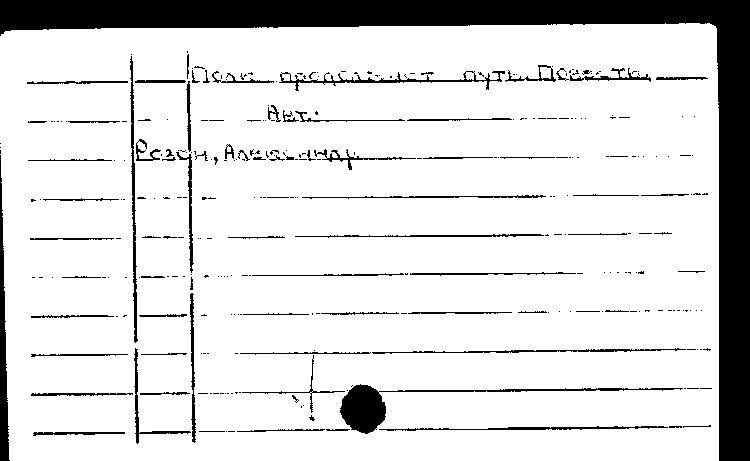 Полк продолжает путь. Повесть.
Авт.:
Резон, Александр